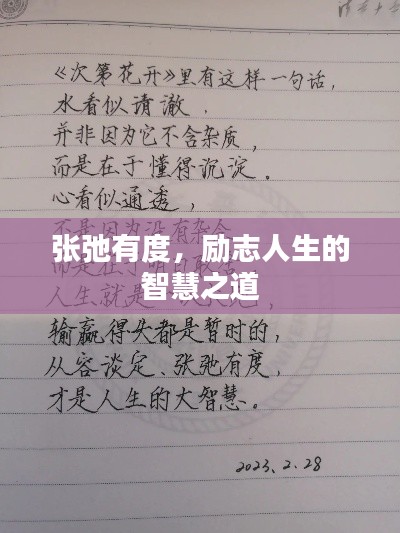 《次第花开》里有这样一句话，
水看似请澈，
并非因为它不含杂质，
而是在于懂得沉淀。
心看似通透，
不是因为没有杂念
张弛有度，励志人生的
智慧之道
人生就是
输赢得失都是暂时的，
从容谈定、张弛有度，
才是人生的大智慧。
2023.2.28